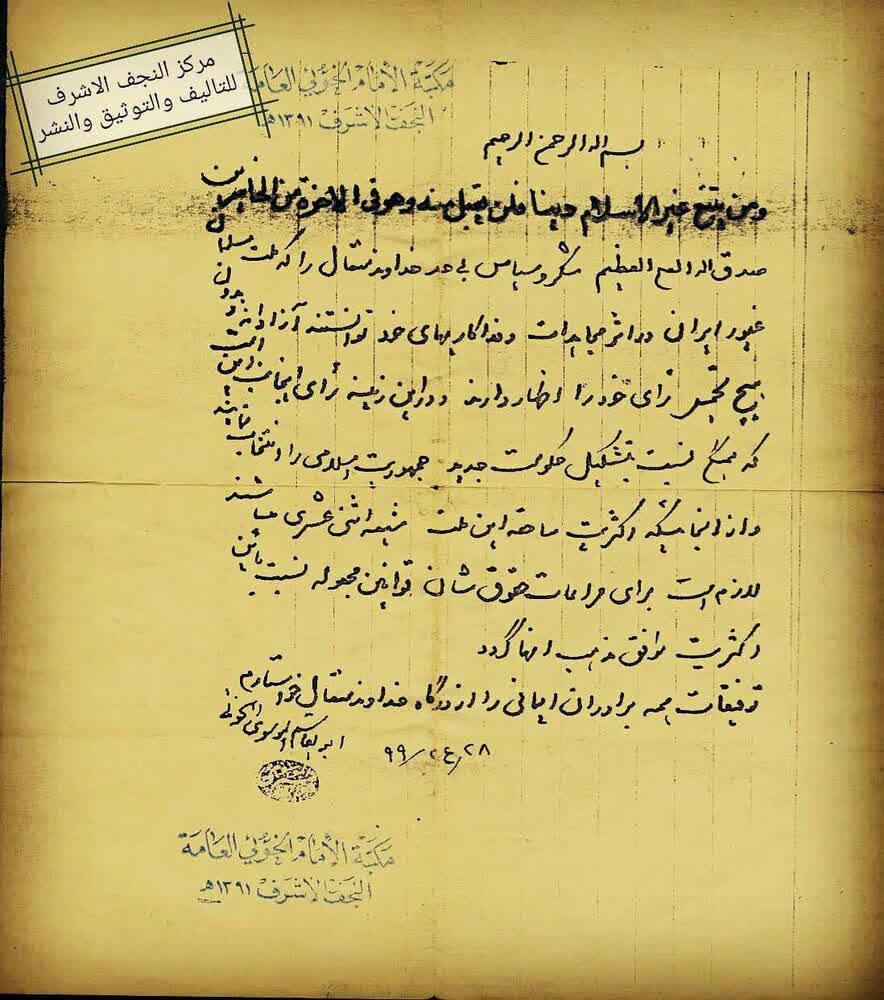 مركز النجف الاشرف
للتاليف والتوثيق والنشر
مكتبة الأمام الخوئي العامة
النجف الاشرف ١٣٩١هـ
بسم الله الرحمن الرحیم
ومن یبتغ غیر الاسلام دینا فلن یقبل منه وهو فی الاخرة من الخاسرین
صدق الله العلی العظیم شکر و سپاس بی حد خداوند متعال را که ملت مسلمان
غیور ایران در اثر مجاهدات و فداکاریهای خود توانستند آزادانه و بدون
هیچ رأی خود را اظهار دارند و در این زمینه رأی اینجانب این است
که همگی نسبت بتشکیل حکومت جدید جمهوریت اسلامی را انتخاب نمایند
و از آنجائیکه اکثریت ساحقه این ملت شیعه اثنی عشری میباشند
لازم است برای مراعات حقوق شان قوانین مجعوله نسبت باین
اکثریت موافق مذهب آنها گردد
توفیقات همه برادران ایمانی را از درگاه خداوند متعال خواستارم
ابوالقاسم الموسوی الخوئی
٢٨/ع٢/٩٩
مكتبة الأمام الخوئي العامة
النجف الاشرف ١٣٩١هـ